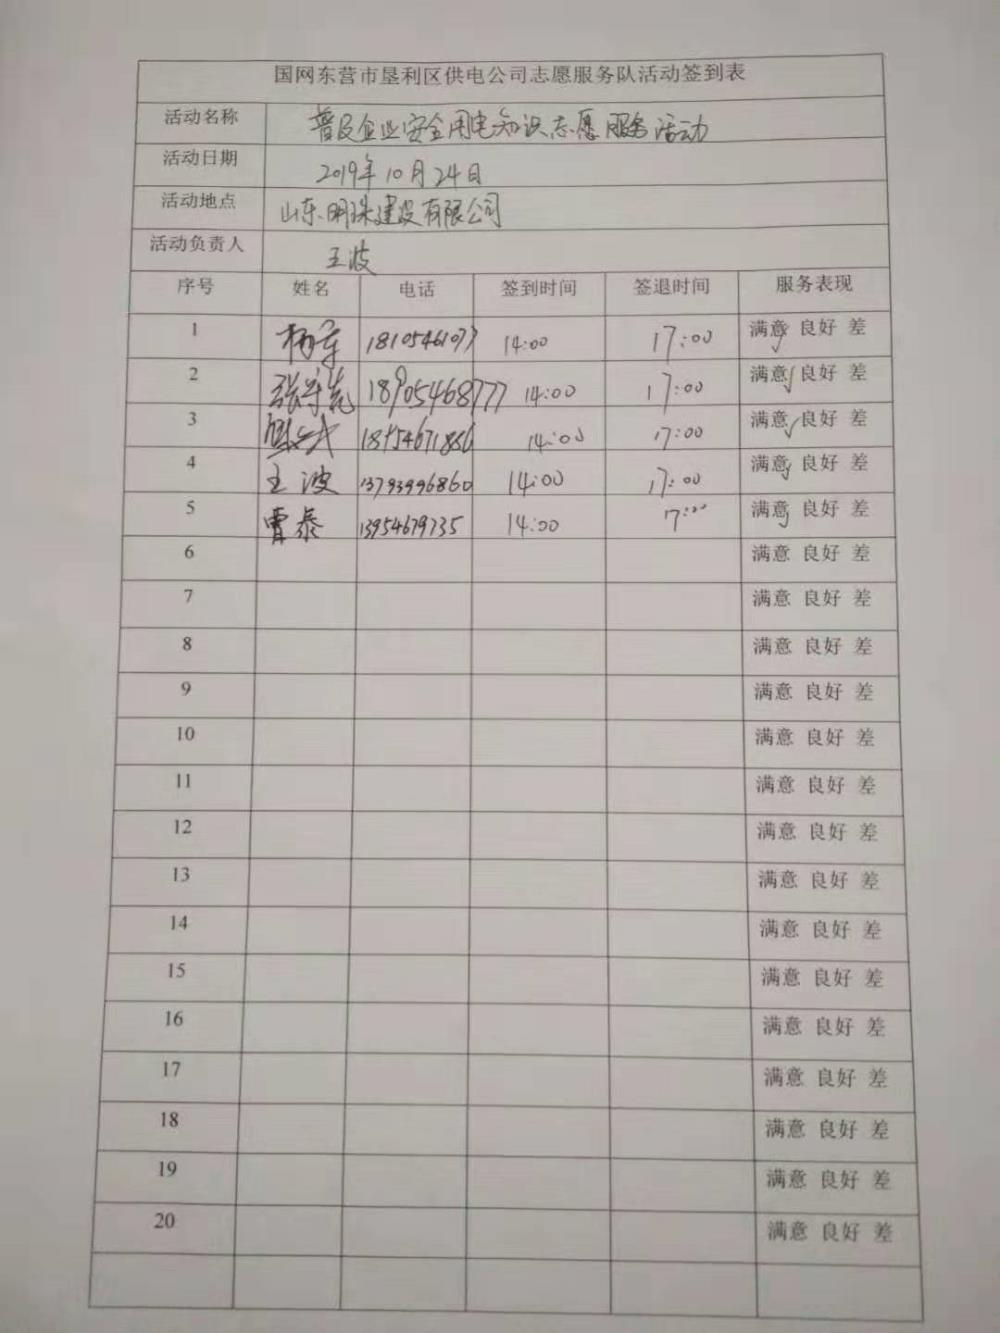 国网东营市垦利区供电公司志愿服务队活动签到表
活动名称 普及企业安全用电知识志愿服务活动
活动日期 2019年10月24日
活动地点 山东明珠建设有限公司
活动负责人 王波
序号 姓名 电话 签到时间 签退时间 服务表现
1 1810546107 14:00 17:00 满意 良好 差
2 18905468777 14:00 17:00 满意 良好 差
3 14:00 17:00 满意 良好 差
4 王波 13793996860 14:00 17:00 满意 良好 差
5 曹泰 13954679735 14:00 7:00 满意 良好 差
6 满意 良好 差
7 满意 良好 差
8 满意 良好 差
9 满意 良好 差
10 满意 良好 差
11 满意 良好 差
12 满意 良好 差
13 满意 良好 差
14 满意 良好 差
15 满意 良好 差
16 满意 良好 差
17 满意 良好 差
18 满意 良好 差
19 满意 良好 差
20 满意 良好 差